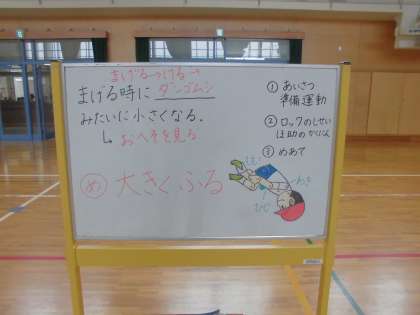 まげる→つける→
まげる時にダンゴムシ
みたいに小さくなる。
↳おへそを見る
め 大きくふる
① あいさつ
準備運動
② ロックのしせい
ほ助のかくにん
③ めあて
わき
ひじ